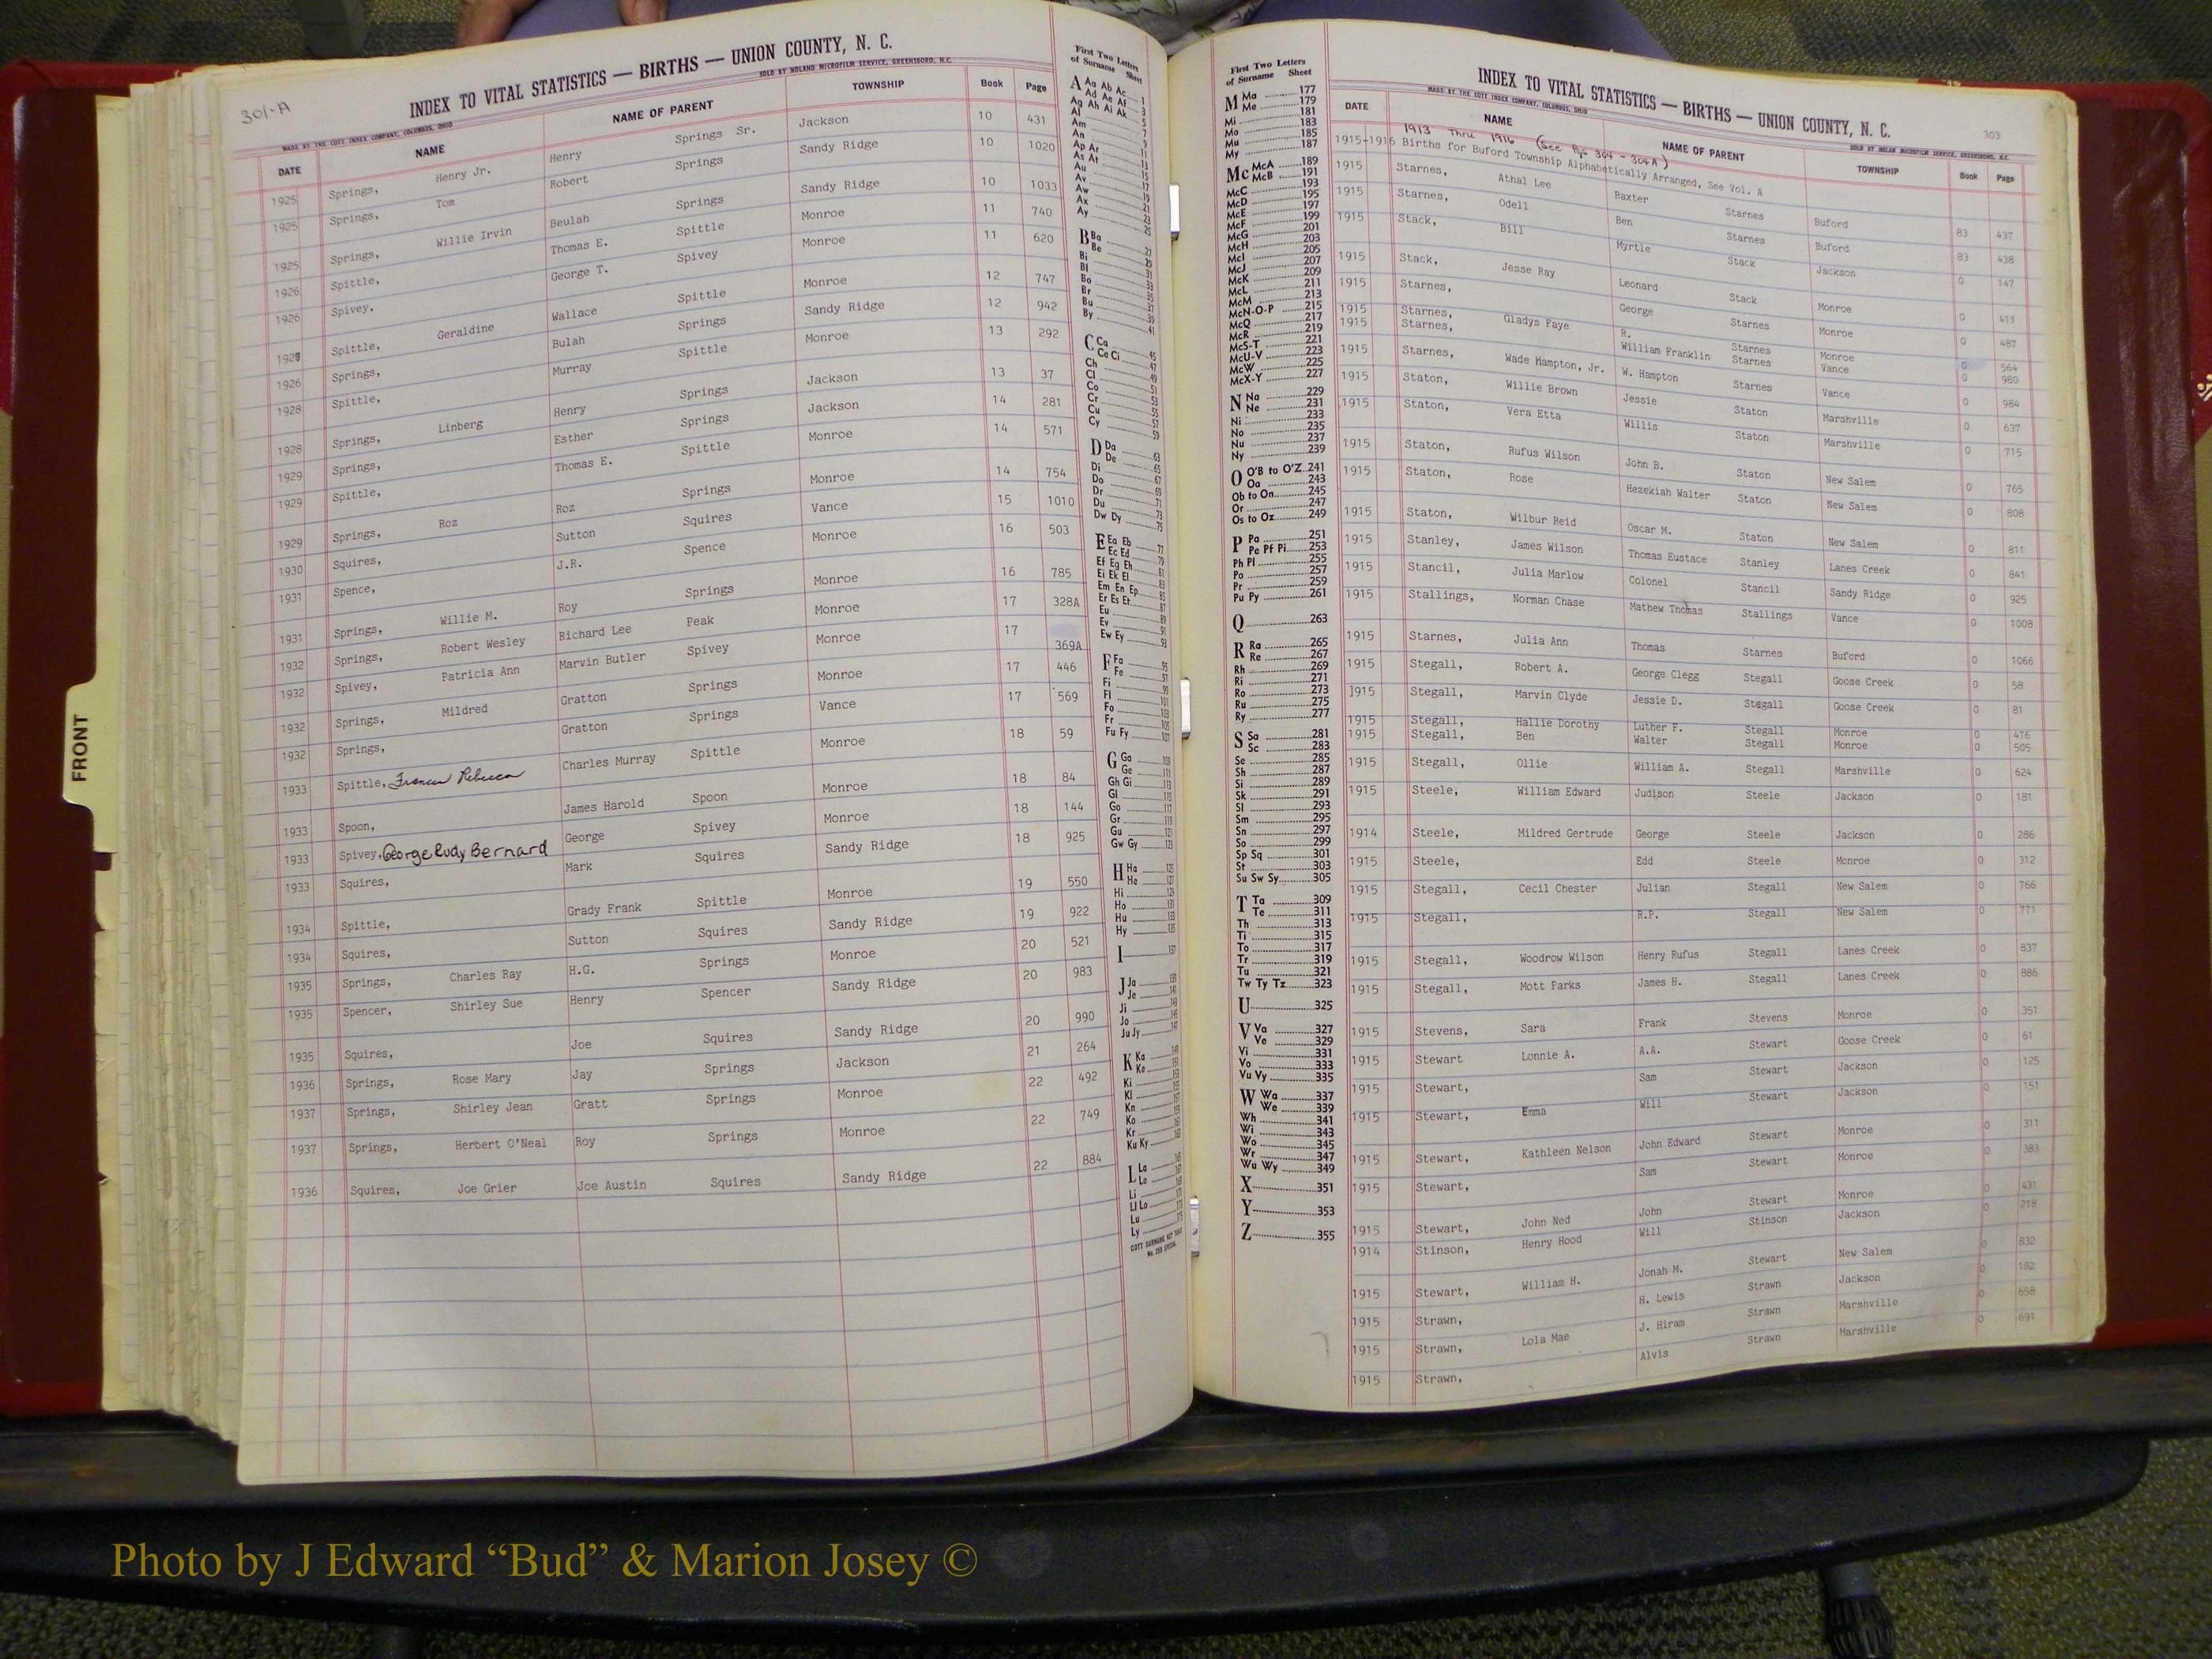 301-A
INDEX TO VITAL STATISTICS — BIRTHS — UNION COUNTY, N. C.
MADE BY THE COTT INDEX COMPANY, COLUMBUS, OHIO SOLD BY NOLAND MICROFILM SERVICE, GREENSBORO, N.C.
DATE NAME NAME OF PARENT TOWNSHIP Book Page
1925 Springs, Henry Jr. Henry Springs Sr. Jackson 10 431
1925 Springs, Tom Robert Springs Sandy Ridge 10 1020
1925 Springs, Willie Irvin Beulah Springs Sandy Ridge 10 1033
1926 Spittle, Thomas E. Spittle Monroe 11 740
1926 Spivey, George T. Spivey Monroe 11 620
1927 Spittle, Geraldine Wallace Spittle Monroe 12 747
1926 Springs, Bulah Springs Sandy Ridge 12 942
1928 Spittle, Murray Spittle Monroe 13 292
1928 Springs, Linberg Henry Springs Jackson 13 37
1929 Springs, Esther Springs Jackson 14 281
1929 Spittle, Thomas E. Spittle Monroe 14 571
1929 Springs, Roz Roz Springs Monroe 14 754
1930 Squires, Sutton Squires Vance 15 1010
1931 Spence, J.R. Spence Monroe 16 503
1931 Springs, Willie M. Roy Springs Monroe 16 785
1932 Springs, Robert Wesley Richard Lee Peak Monroe 17 328A
1932 Spivey, Patricia Ann Marvin Butler Spivey Monroe 17 369A
1932 Springs, Mildred Gratton Springs Monroe 17 446
1932 Springs, Gratton Springs Vance 17 569
1933 Spittle, Frances Rebecca Charles Murray Spittle Monroe 18 59
1933 Spoon, James Harold Spoon Monroe 18 84
1933 Spivey, George Rudy Bernard George Spivey Monroe 18 144
1933 Squires, Mark Squires Sandy Ridge 18 925
1934 Spittle, Grady Frank Spittle Monroe 19 550
1934 Squires, Sutton Squires Sandy Ridge 19 922
1935 Springs, Charles Ray H.G. Springs Monroe 20 521
1935 Spencer, Shirley Sue Henry Spencer Sandy Ridge 20 983
1935 Squires, Joe Squires Sandy Ridge 20 990
1936 Springs, Rose Mary Jay Springs Jackson 21 264
1937 Springs, Shirley Jean Gratt Springs Monroe 22 492
1937 Springs, Herbert O'Neal Roy Springs Monroe 22 749
1936 Squires, Joe Grier Joe Austin Squires Sandy Ridge 22 884
FRONT
First Two Letters
of Surname Sheet
A Aa Ab Ac 1
Ad Ae Af 3
Ag Ah Ai Ak 5
Al
Am
An
Ap Ar
As At
Au
Av
Aw
Ax
Ay
B Ba
Be
Bi
Bl
Bo
Br
Bu
By
C Ca
Ce Ci
Ch
Cl
Co
Cr
Cu
Cy
D Da
De
Di
Do
Dr
Du
Dw Dy
E Ea Eb
Ec Ed
Ef Eg Eh
Ei Ek El
Em En Ep
Er Es Et
Eu
Ev
Ew Ey
F Fa
Fe
Fi
Fl
Fo
Fr
Fu Fy
G Ga
Ge
Gh Gi
Gl
Go
Gr
Gu
Gw Gy
H Ha
He
Hi
Ho
Hu
Hy
I
J Ja
Je
Ji
Jo
Ju Jy
K Ka
Ke
Ki
Kl
Kn
Ko
Kr
Ku Ky
L La
Le
Li
Ll Lo
Lu
Ly
First Two Letters
of Surname Sheet
M Ma 177
Me 179
Mi 181
Mo 183
Mu 185
My 187
Mc McA 189
McB 191
McC 193
McD 195
McE 197
McF 199
McG 201
McH 203
McI 205
McJ 207
McK 209
McL 211
McM 213
McN-O-P 215
McQ 217
McR 219
McS-T 221
McU-V 223
McW 225
McX-Y 227
N Na 229
Ne 231
Ni 233
No 235
Nu 237
Ny 239
O O'B to O'Z 241
Oa 243
Ob to On 245
Or 247
Os to Oz 249
P Pa 251
Pe Pf Pi 253
Ph Pl 255
Po 257
Pr 259
Pu Py 261
Q 263
R Ra 265
Re 267
Rh 269
Ri 271
Ro 273
Ru 275
Ry 277
S Sa 281
Sc 283
Se 285
Sh 287
Si 289
Sk 291
Sl 293
Sm 295
Sn 297
So 299
Sp Sq 301
St 303
Su Sw Sy 305
T Ta 309
Te 311
Th 313
Ti 315
To 317
Tr 319
Tu 321
Tw Ty Tz 323
U 325
V Va 327
Ve 329
Vi 331
Vo 333
Vu Vy 335
W Wa 337
We 339
Wh 341
Wi 343
Wo 345
Wr 347
Wu Wy 349
X 351
Y 353
Z 355
INDEX TO VITAL STATISTICS — BIRTHS — UNION COUNTY, N. C.
303
MADE BY THE COTT INDEX COMPANY, COLUMBUS, OHIO SOLD BY NOLAN MICROFILM SERVICE, GREENSBORO, N.C.
DATE NAME NAME OF PARENT TOWNSHIP Book Page
1913 Thru 1916 (See Pgs 304 - 304A)
1915-1916 Births for Buford Township Alphabetically Arranged, See Vol. A
1915 Starnes, Athal Lee Baxter Starnes Buford 83 437
1915 Starnes, Odell Ben Starnes Buford 83 438
1915 Stack, Bill Myrtle Stack Jackson 0 147
1915 Stack, Jesse Ray Leonard Stack Monroe 0 411
1915 Starnes, George Starnes Monroe 0 487
1915 Starnes, R. Starnes Monroe 0 564
1915 Starnes, Gladys Faye William Franklin Starnes Vance 0 980
1915 Starnes, Wade Hampton, Jr. W. Hampton Starnes Vance 0 984
1915 Staton, Willie Brown Jessie Staton Marshville 0 637
1915 Staton, Vera Etta Willis Staton Marshville 0 715
1915 Staton, Rufus Wilson John B. Staton New Salem 0 765
1915 Staton, Rose Hezekiah Walter Staton New Salem 0 808
1915 Staton, Wilbur Reid Oscar M. Staton New Salem 0 811
1915 Stanley, James Wilson Thomas Eustace Stanley Lanes Creek 0 841
1915 Stancil, Julia Marlow Colonel Stancil Sandy Ridge 0 925
1915 Stallings, Norman Chase Mathew Thomas Stallings Vance 0 1008
1915 Starnes, Julia Ann Thomas Starnes Buford 0 1066
1915 Stegall, Robert A. George Clegg Stegall Goose Creek 0 58
1915 Stegall, Marvin Clyde Jessie D. Stegall Goose Creek 0 81
1915 Stegall, Hallie Dorothy Luther F. Stegall Monroe 0 476
1915 Stegall, Ben Walter Stegall Monroe 0 505
1915 Stegall, Ollie William A. Stegall Marshville 0 624
1915 Steele, William Edward Judison Steele Jackson 0 181
1914 Steele, Mildred Gertrude George Steele Jackson 0 286
1915 Steele, Edd Steele Monroe 0 312
1915 Stegall, Cecil Chester Julian Stegall New Salem 0 766
1915 Stegall, R.P. Stegall New Salem 0 771
1915 Stegall, Woodrow Wilson Henry Rufus Stegall Lanes Creek 0 837
1915 Stegall, Mott Parks James H. Stegall Lanes Creek 0 886
1915 Stevens, Sara Frank Stevens Monroe 0 351
1915 Stewart Lonnie A. A.A. Stewart Goose Creek 0 61
1915 Stewart, Sam Stewart Jackson 0 125
1915 Stewart, Emma Will Stewart Jackson 0 151
1915 Stewart, Kathleen Nelson John Edward Stewart Monroe 0 311
1915 Stewart, Sam Stewart Monroe 0 383
1915 Stewart, John Ned John Stewart Monroe 0 431
1914 Stinson, Henry Hood Will Stinson Jackson 0 218
1915 Stewart, William H. Jonah M. Stewart New Salem 0 832
1915 Strawn, H. Lewis Strawn Jackson 0 182
1915 Strawn, Lola Mae J. Hiram Strawn Marshville 0 658
1915 Strawn, Alvis Strawn Marshville 0 691
Photo by J Edward “Bud” & Marion Josey ©